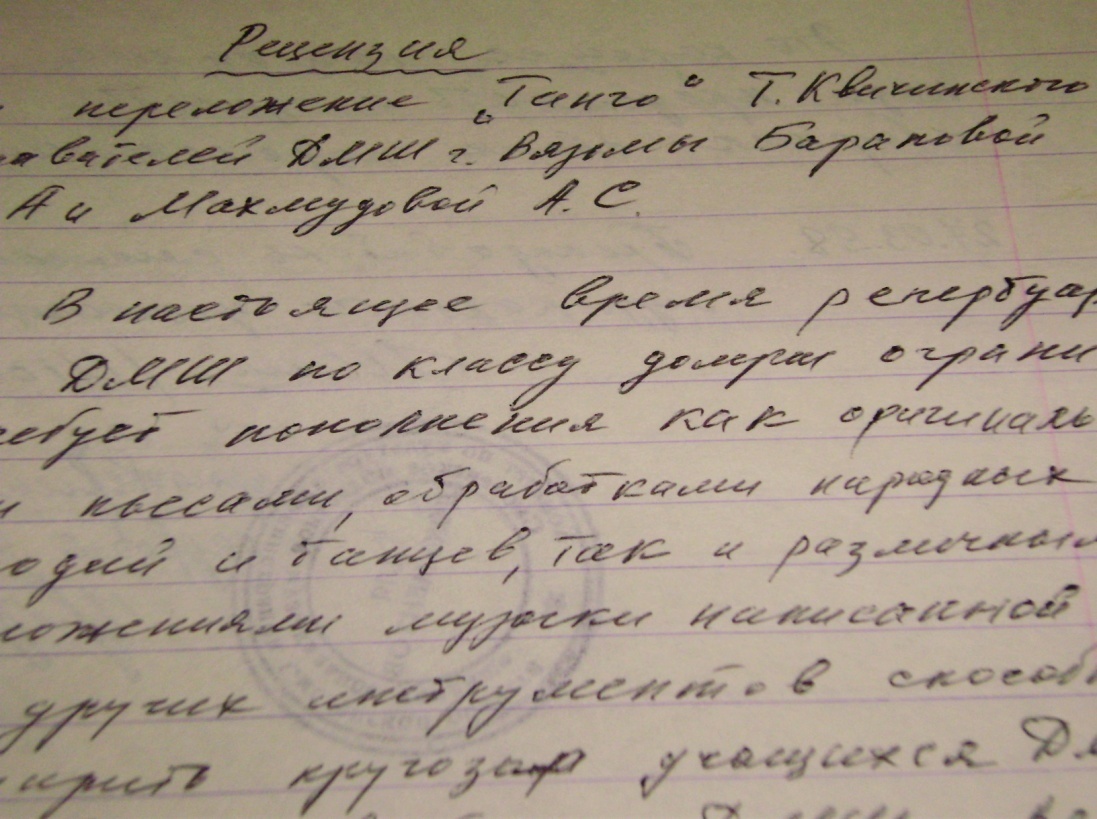 Рецензия
переложение "Танго" Т. Квичинского
авателей ДМШ г. Вязьмы Барановой
А и Махмудовой А. С.
В настоящее время репертуар
ДМШ по классу домры ограни
ебует пополнения как оригиналь
и пьесами, обработками народных
одий и танцев, так и различным
ложениями музыки написанной
других инструментов способ
ирить кругозор учащихся ДМ